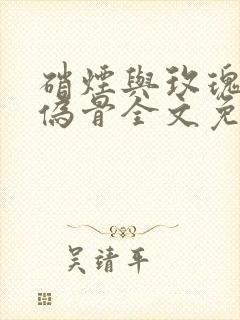 硝煙與玫瑰
偽骨全文免
吳靖平